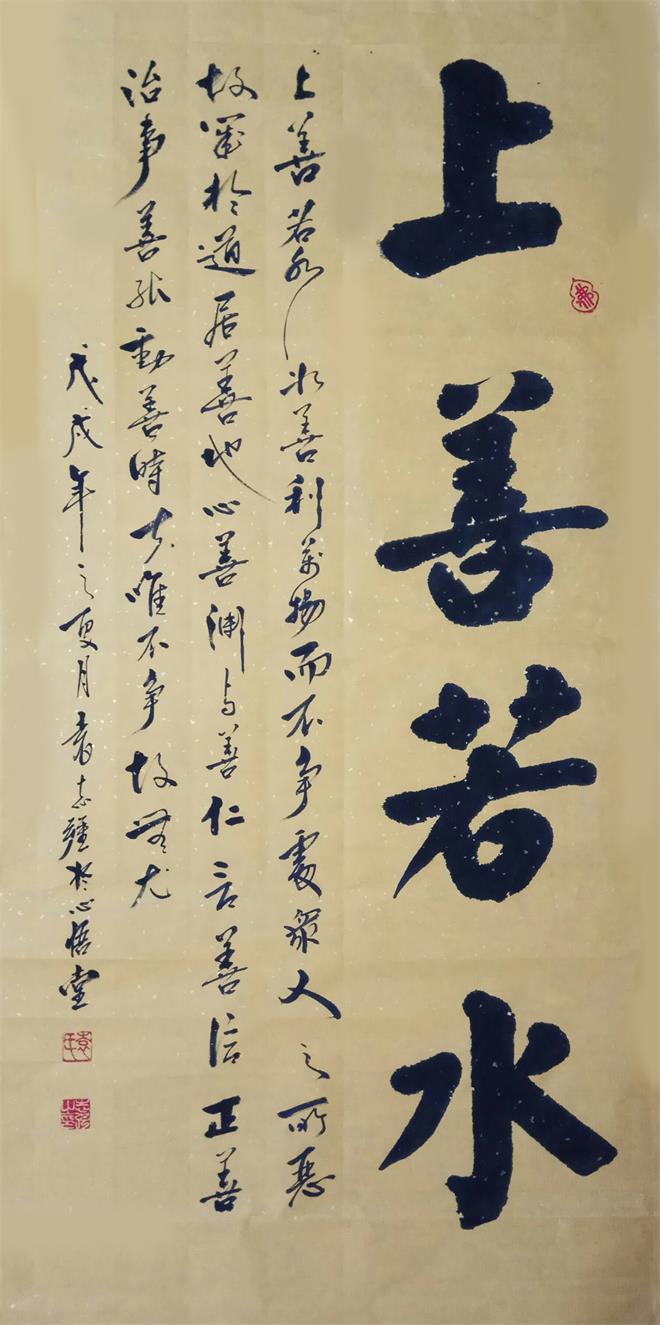 上善若水
上善若水水善利萬物而不争處衆人之所惡
故幾於道居善地心善淵与善仁言善信正善
治事善能動善時夫唯不争故無尤
戊戌年之夏月袁志疆於心悟堂